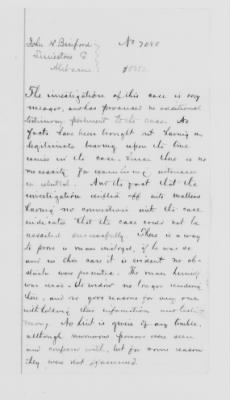 John N. Buford
Limestone Co
Alabama
No 7080
The investigation of this case is very
meager, and has produced no additional
testimony pertinent to the case. No
facts have been brought out having a
legitimate bearing upon the
in the case. Hence there is no
necessity for examining witnesses
in rebuttal. And the fact that the
investigation drifted off into matters
having no connection with the case
indicates that the case could not be
assailed successfully. There is a way
to prove a man disloyal, if he was so
and in this case it is evident no
was
was dead. His widow no longer residing
here, and no good reasons for any one
withholding their information and
mony. No hint is given of any trouble,
although numerous persons were seen
and conferred with, but for some reason
they were not examined.